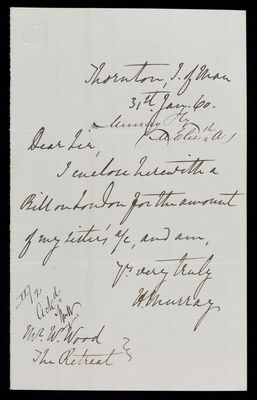 Thornton, I. of Man
31st Jan. 60.
Murray Hy
(a Elizth A)
Dear Sir,
I enclose herewith a
Bill on London for the amount
of my sister's a/c, and am,
Yrs very truly
H. Murray
Ackd
Mr. W. Wood
The Retreat